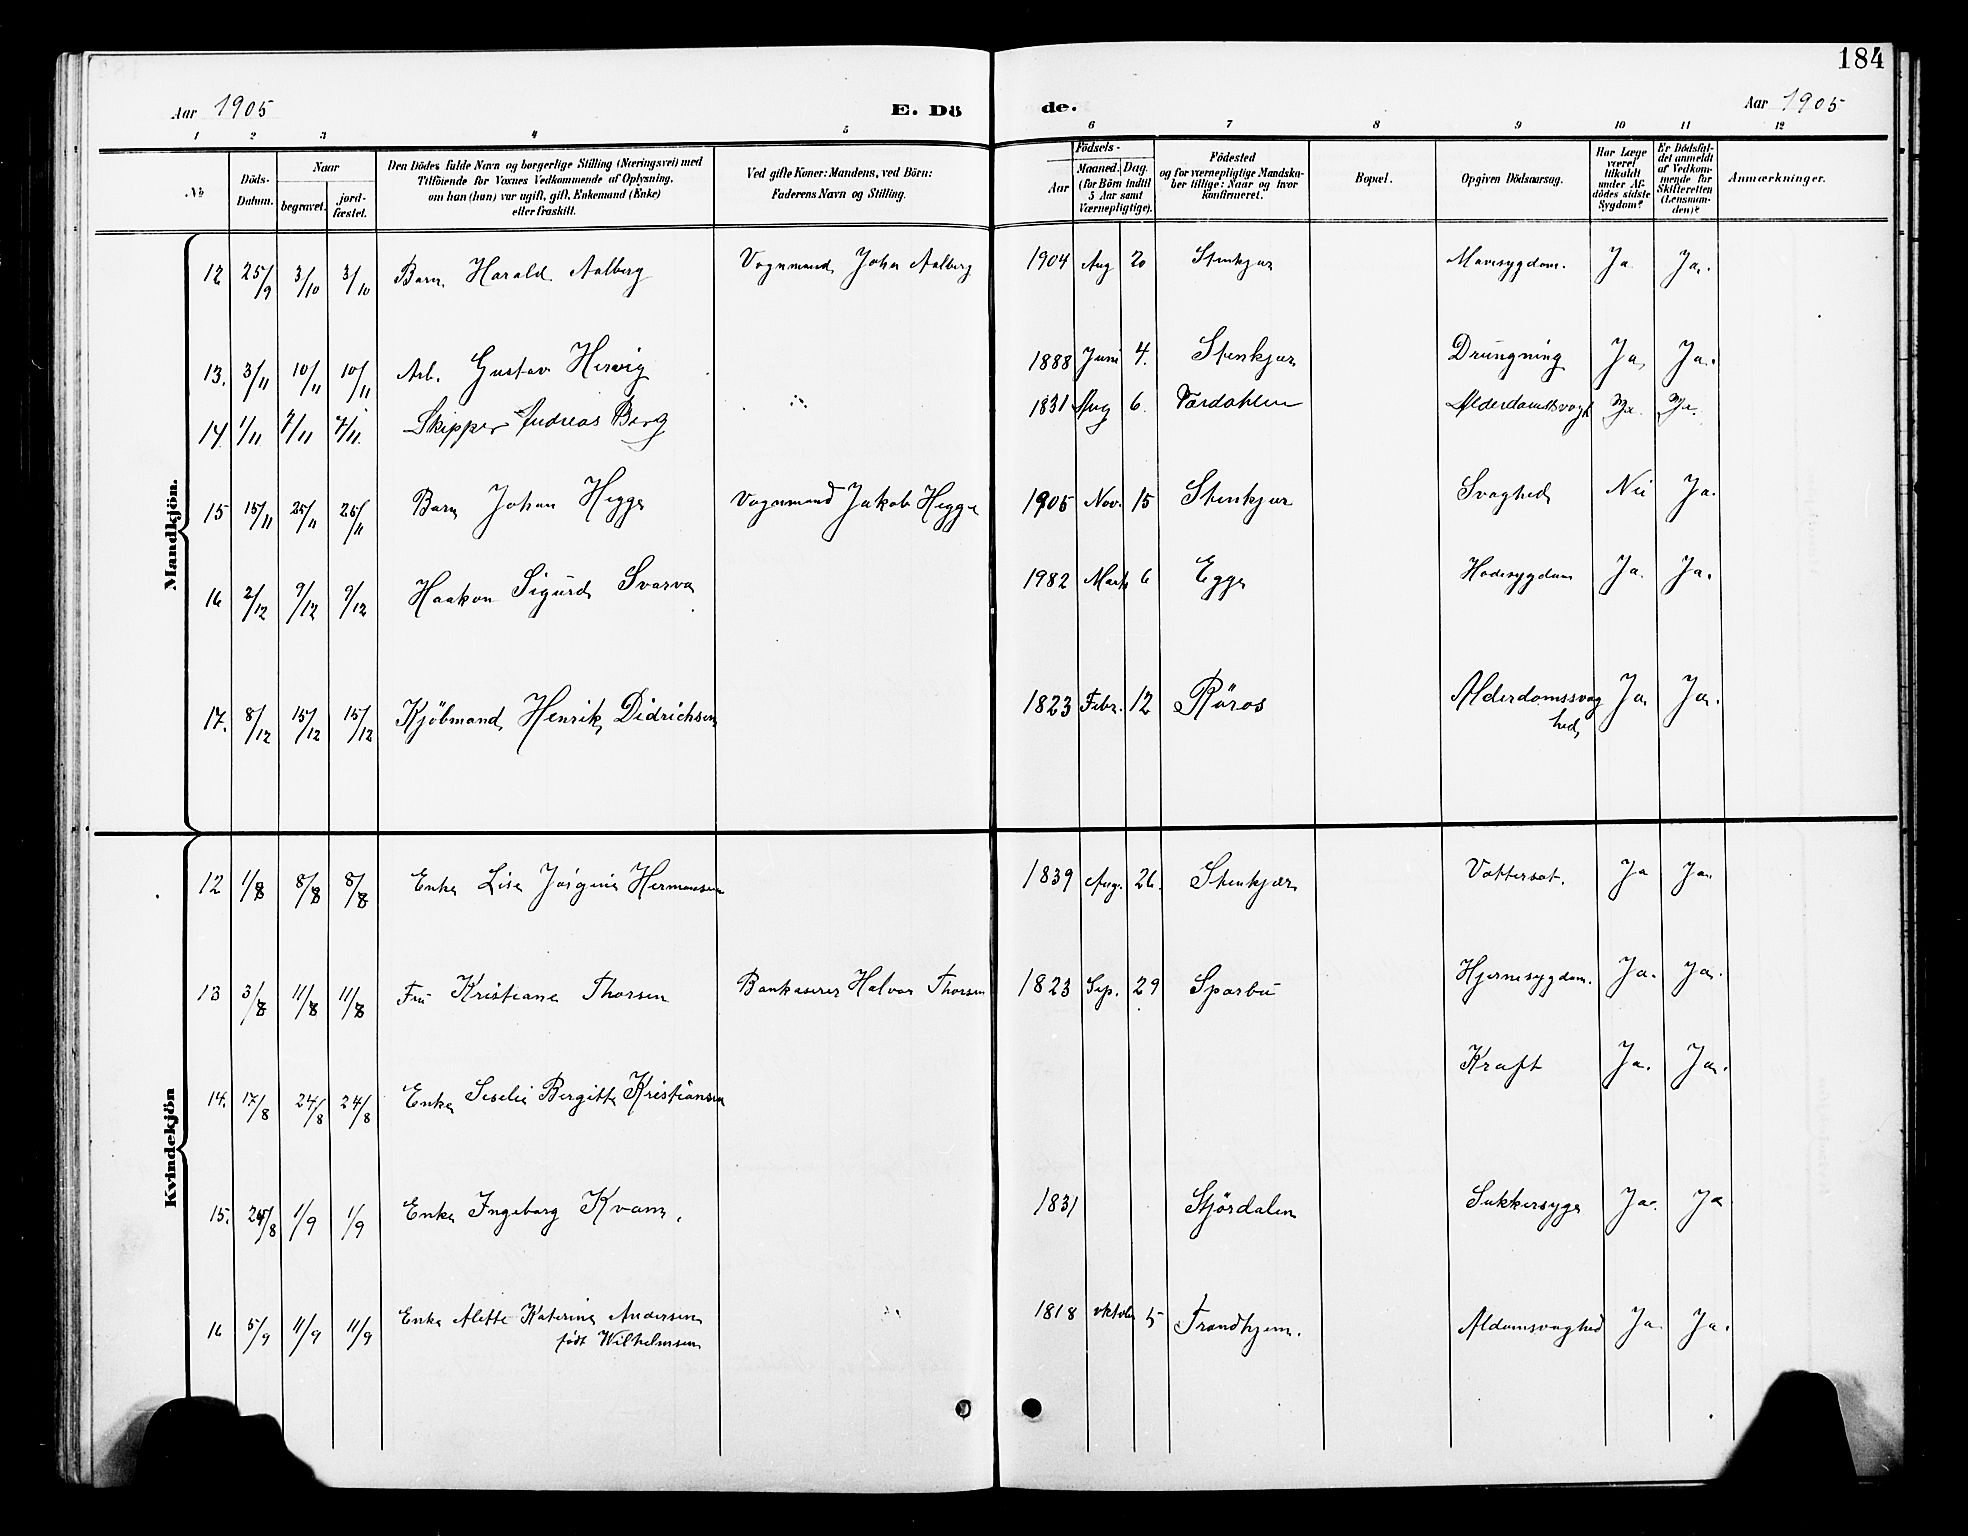 184
Aar 1905
E. Dö
de.
Aar 1905
1 2 3 4 5 6 7 8 9 10 11 12
No
Döds-
Datum.
Naar
begravet.
jord-
fæstet.
Den Dödes fulde Navn og borgerlige Stilling (Næringsvei) med
Tilföiende for Voxnes Vedkommende af Oplysning.
om han (hun) var ugift, gift, Enkemand (Enke)
eller fraskilt.
Ved gifte Koner: Mandens, ved Börn:
Faderens Navn og Stilling.
Födsels-
Aar
Maaned. Dag.
(for Börn indtil
5 Aar samt
Værnepligtige).
Födested
og for værnepligtige Mandska-
ber tillige: Naar og hvor
konfirmeret.
Bopæl.
Opgiven Dödsaarsag.
Har Læge
været
tilkaldt
under Af-
dödes sidste
Sygdom?
Er Dödsfal-
det anmeldt
af Vedkom-
mende for
Skifteretten
(Lensman-
den)?
Anmærkninger.
Mandkjön.
12 25/9 3/10 3/10 Barn Harald Aalberg Vognmand Johan Aalberg 1904 Aug 20 Stenkjær Mavesygdom. Ja Ja.
13. 3/11 10/11 10/11 Arb. Gustav Hervig 1888 Juni 4. Stenkjær Drungning Ja Ja.
14. 1/11 7/11 7/11. Skipper Andreas Berg 1831 Aug 6. Værdahlen Alderdomssvagh Ja. Ja.
15 15/11 25/11 25/11 Barn Johan Hegge Vognmand Jakob Hegge 1905 Nov. 15 Stenkjær Svaghed Nei Ja.
16 2/12 9/12 9/12 Haakon Sigurd Svarva 1982 Marts 6 Egge Hodesygdom Ja. Ja.
17. 8/12 15/12 15/12 Kjöbmand Henrik Didrichsen 1823 Febr. 12 Röros Alderdomssvag Ja Ja.
hed
Kvindekjön
12 1/8 8/8 8/8 Enke Lise Jörgine Hermansen 1839 Aug. 26. Stenkjær Vattersot. Ja Ja
13 3/8 11/8 11/8 Fru Kristiane Thorsen Bankaserer Halvor Thorsen 1823 Sep. 29 Sparbu Hjernesygdom. Ja. Ja.
14. 17/8 24/8 24/8 Enke Seselie Bergitte Kristiansen Kraft Ja. Ja.
15. 25/8 1/9 1/9 Enke Ingeborg Kvam. 1831 Stjördalen Sukkersyge Ja. Ja
16 5/9 11/9 11/9 Enke Alette Katerine Andersen 1818 oktober 5 Trondhjem. Aldomsvaghed Ja. Ja.
född Wilhelmsen